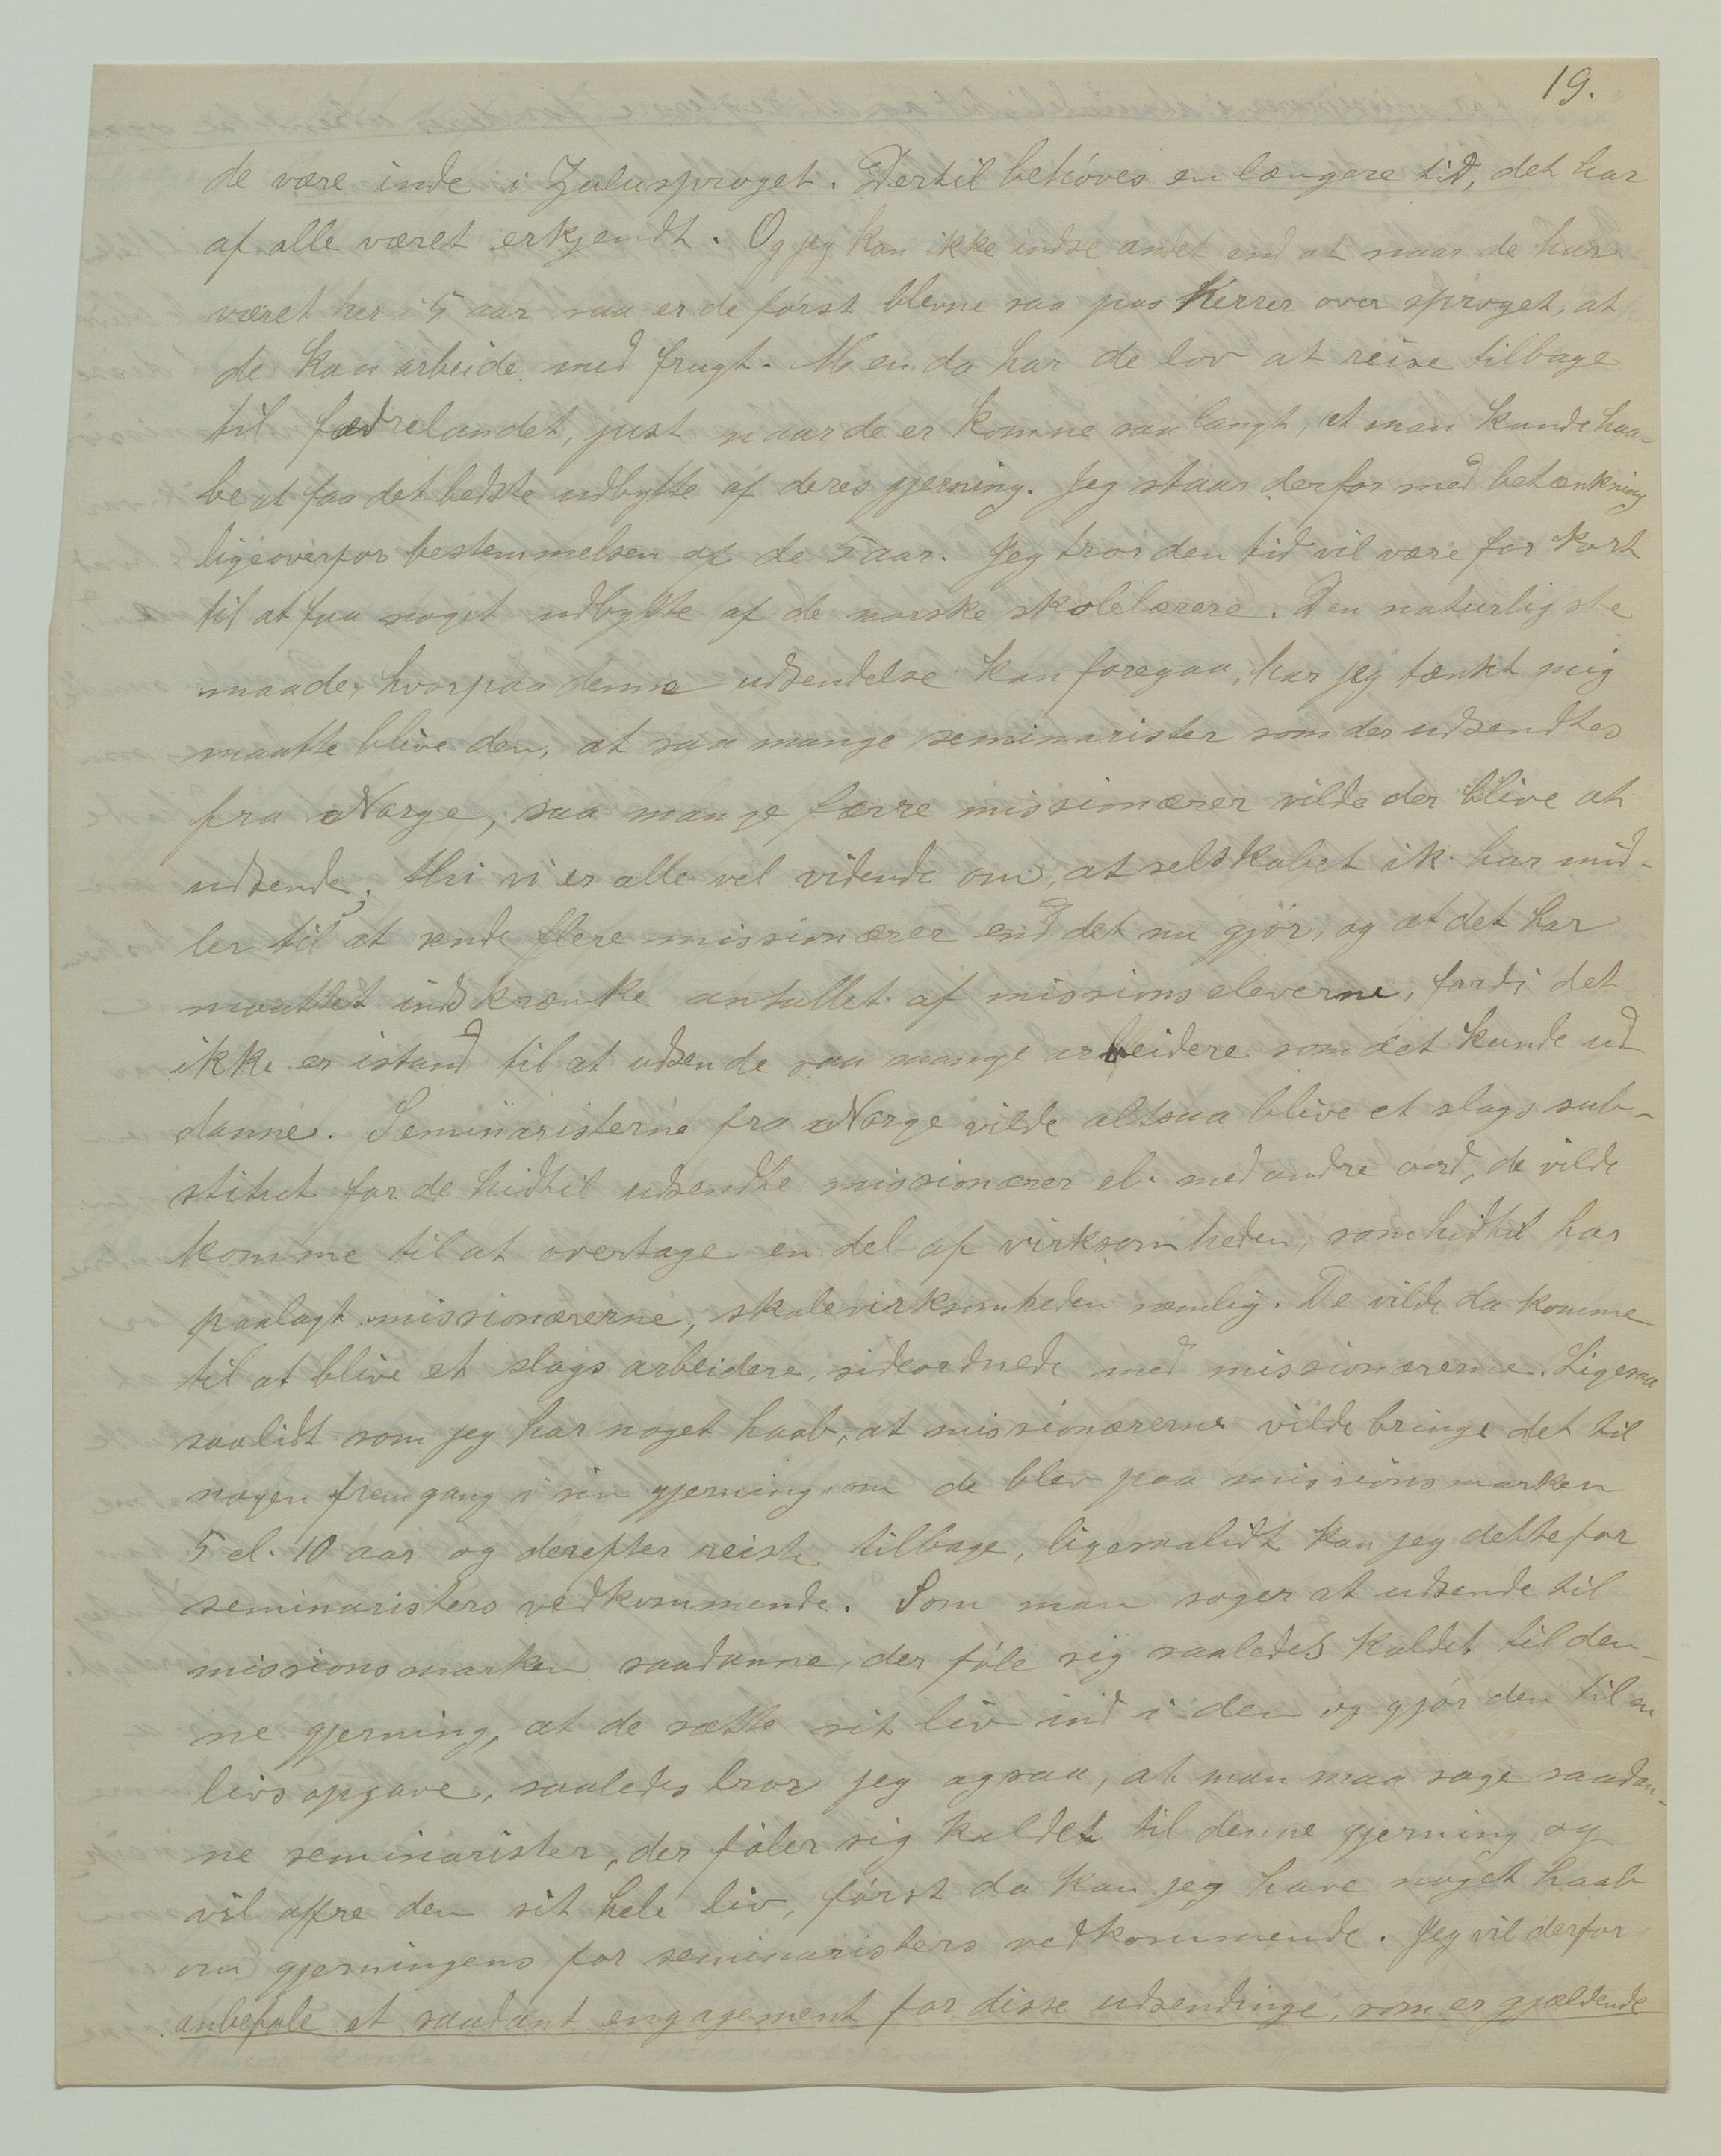 19.
de være inde i Zulusproget. Dertil behöves en længere tid, det har
af alle været erkjendt. Og jeg kan ikke indse andet end at naar de har
været her i 5 aar saa er de först blevne saa pas herrer over sproget, at
de kan arbeide med frugt. Men da har de lov at reise tilbage
til fædrelandet, just naar de er komne saa langt, at man kunde haa-
be at faa det bedste udbytte af deres gjerning. Jeg staar derfor med betænkning
ligeoverfor bestemmelsen af de 5 aar. Jeg tror den tid vil være for kort
til at faa noget udbytte af de norske skolelærere. Den naturligste
maade, hvorpaa denne udsendelse kan foregaa, har jeg tænkt mig
maatte blive den, at saa mange seminarister som der udsendtes
fra Norge, saa mange færre missionærer vilde der blive at
udsende; thi vi er alle vel vidende om, at selskabet ik. har mid-
ler til at sende flere missionærer end det nu gjör, og at det har
maattet indskrænke antallet af missionseleverne, fordi det
ikke er istand til at udsende saa mange arbeidere som det kunde ud
danne. Seminaristerne fra Norge vilde altsaa blive et slags sub-
stitut for de hidtil udsendte missionærer el. med andre ord, de vilde
komme til at overtage en del af virksomheden, som hidtil har
paalagt missionærerne, skolevirksomheden nemlig. De vilde da komme
til at blive et slags arbeidere, sideordnede med missionærerne. Ligesaa
saalidt som jeg har noget haab, at missionærerne vilde bringe det til
nogen fremgang i sin gjerning om de blev paa missionsmarken
5 el. 10 aar og derefter reiste tilbage, ligesaalidt kan jeg dette for
seminaristers vedkommende. Som man soger at udsende til
missionsmarken saadanne, der föle sig saaledes kaldet til den-
ne gjerning, at de sætte sit liv ind i den og gjör den til en
livsopgave, saaledes tror jeg ogsaa, at man maa soge saadan-
ne seminarister, der föler sig kaldet til denne gjerning og
vil ofre den sit hele liv, först da kan jeg have noget haab
om gjerningens for seminaristers vedkommende. Jeg vil derfor
anbefale et saadant engagement for disse udsendinge, som er gjældende